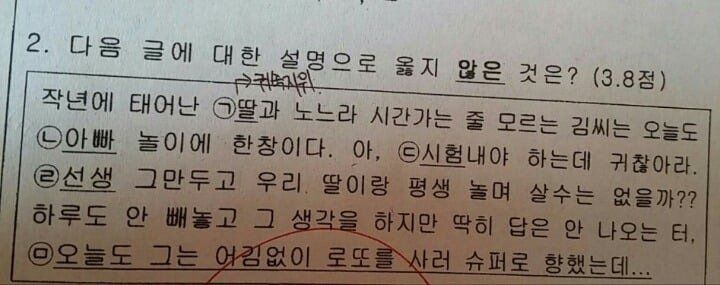 2. 다음 글에 대한 설명으로 옳지 않은 것은? (3.8점)
→귀속지위
작년에 태어난 ㉠딸과 노느라 시간가는 줄 모르는 김씨는 오늘도
㉡아빠 놀이에 한창이다. 아, ㉢시험내야 하는데 귀찮아라.
㉣선생 그만두고 우리 딸이랑 평생 놀며 살수는 없을까??
하루도 안 빼놓고 그 생각을 하지만 딱히 답은 안 나오는 터,
㉤오늘도 그는 어김없이 로또를 사러 슈퍼로 향했는데...